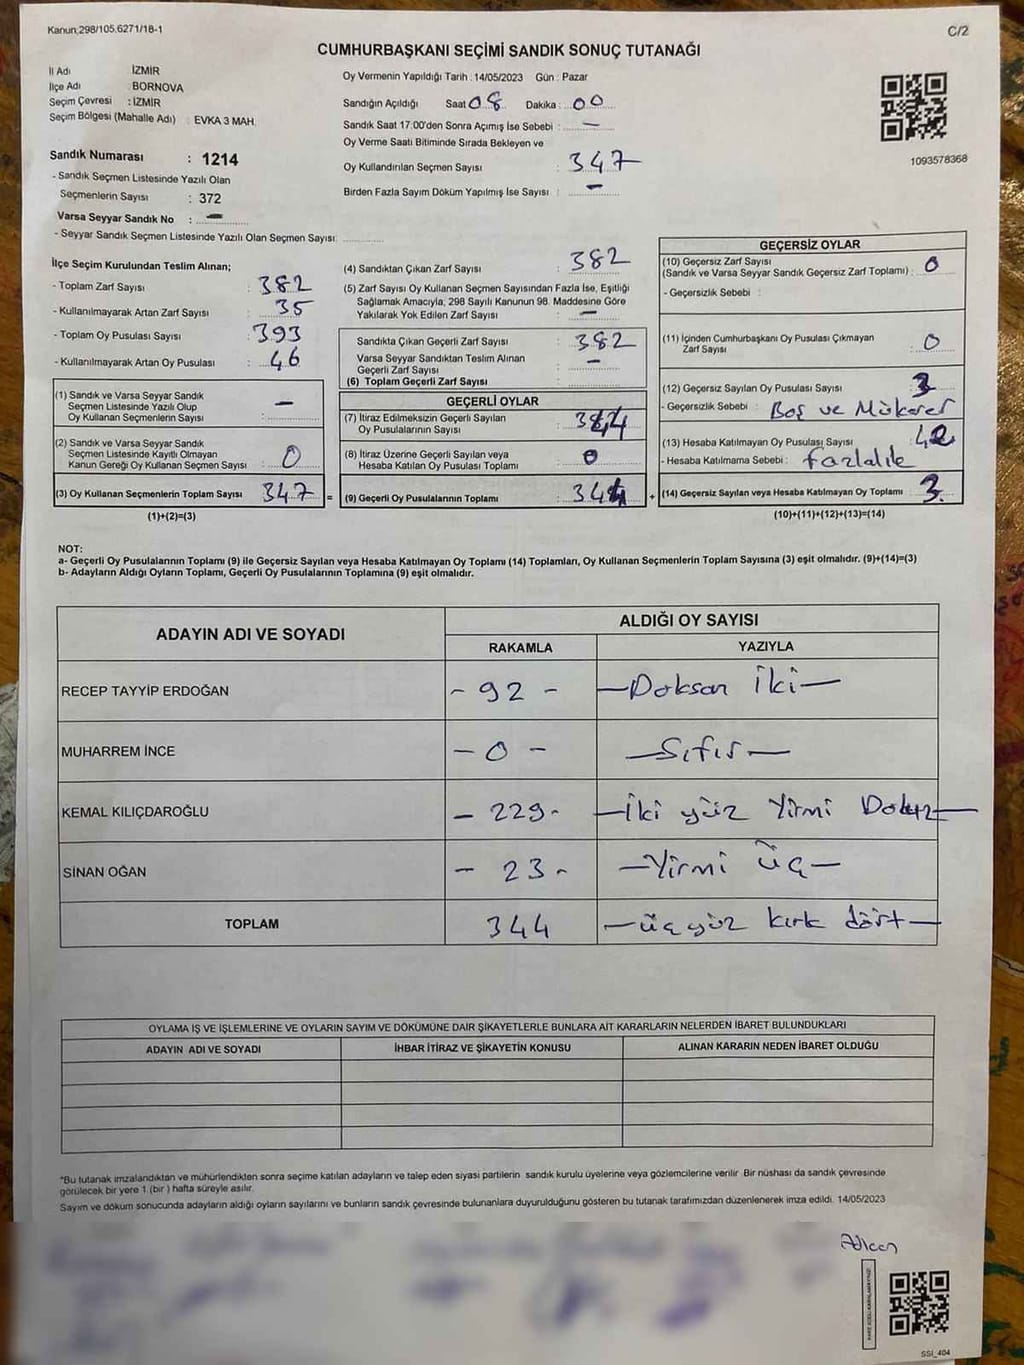 Kanun,298/105.6271/18-1
C/2
CUMHURBAŞKANI SEÇİMİ SANDIK SONUÇ TUTANAĞI
İl Adı İZMİR
İlçe Adı BORNOVA
Seçim Çevresi : İZMİR
Seçim Bölgesi (Mahalle Adı) : EVKA 3 MAH.
Sandık Numarası : 1214
- Sandık Seçmen Listesinde Yazılı Olan
Seçmenlerin Sayısı : 372
Varsa Seyyar Sandık No : -
- Seyyar Sandık Seçmen Listesinde Yazılı Olan Seçmen Sayısı:
Oy Vermenin Yapıldığı Tarih : 14/05/2023 Gün : Pazar
Sandığın Açıldığı Saat 08 Dakika : 00
Sandık Saat 17:00'den Sonra Açımış İse Sebebi : -
Oy Verme Saati Bitiminde Sırada Bekleyen ve
Oy Kullandırılan Seçmen Sayısı : 347
Birden Fazla Sayım Döküm Yapılmış İse Sayısı : -
1093578368
İlçe Seçim Kurulundan Teslim Alınan;
- Toplam Zarf Sayısı : 382
- Kullanılmayarak Artan Zarf Sayısı : 35
- Toplam Oy Pusulası Sayısı : 393
- Kullanılmayarak Artan Oy Pusulası : 46
(1) Sandık ve Varsa Seyyar Sandık
Seçmen Listesinde Yazılı Olup
Oy Kullanan Seçmenlerin Sayısı : -
(2) Sandık ve Varsa Seyyar Sandık
Seçmen Listesinde Kayıtlı Olmayan
Kanun Gereği Oy Kullanan Seçmen Sayısı : 0
(3) Oy Kullanan Seçmenlerin Toplam Sayısı 347 =
(1)+(2)=(3)
(4) Sandıktan Çıkan Zarf Sayısı : 382
(5) Zarf Sayısı Oy Kullanan Seçmen Sayısından Fazla İse, Eşitliği
Sağlamak Amacıyla, 298 Sayılı Kanunun 98. Maddesine Göre
Yakılarak Yok Edilen Zarf Sayısı : -
Sandıkta Çıkan Geçerli Zarf Sayısı : 382
Varsa Seyyar Sandıktan Teslim Alınan
Geçerli Zarf Sayısı : -
(6) Toplam Geçerli Zarf Sayısı :
GEÇERLİ OYLAR
(7) İtiraz Edilmeksizin Geçerli Sayılan
Oy Pusulalarının Sayısı :
(8) İtiraz Üzerine Geçerli Sayılan veya
Hesaba Katılan Oy Pusulası Toplamı : 0
(9) Geçerli Oy Pusulalarının Toplamı : 344 +
GEÇERSİZ OYLAR
(10) Geçersiz Zarf Sayısı
(Sandık ve Varsa Seyyar Sandık Geçersiz Zarf Toplamı) : 0
- Geçersizlik Sebebi :
(11) İçinden Cumhurbaşkanı Oy Pusulası Çıkmayan
Zarf Sayısı : 0
(12) Geçersiz Sayılan Oy Pusulası Sayısı : 3
- Geçersizlik Sebebi : Boş ve Mükerer
(13) Hesaba Katılmayan Oy Pusulası Sayısı :
- Hesaba Katılmama Sebebi : fazlalık
(14) Geçersiz Sayılan veya Hesaba Katılmayan Oy Toplamı : 3
(10)+(11)+(12)+(13)=(14)
NOT:
a- Geçerli Oy Pusulalarının Toplamı (9) ile Geçersiz Sayılan veya Hesaba Katılmayan Oy Toplamı (14) Toplamları, Oy Kullanan Seçmenlerin Toplam Sayısına (3) eşit olmalıdır. (9)+(14)=(3)
b- Adayların Aldığı Oyların Toplamı, Geçerli Oy Pusulalarının Toplamına (9) eşit olmalıdır.
ADAYIN ADI VE SOYADI ALDIĞI OY SAYISI
RAKAMLA YAZIYLA
RECEP TAYYİP ERDOĞAN - 92 - - Doksan İki -
MUHARREM İNCE - 0 - - Sıfır -
KEMAL KILIÇDAROĞLU - 229 - - İki yüz Yirmi Dokuz -
SİNAN OĞAN - 23 - - Yirmi üç -
TOPLAM 344 - üç yüz kırk dört -
OYLAMA İŞ VE İŞLEMLERİNE VE OYLARIN SAYIM VE DÖKÜMÜNE DAİR ŞİKAYETLERLE BUNLARA AİT KARARLARIN NELERDEN İBARET BULUNDUKLARI
ADAYIN ADI VE SOYADI İHBAR İTİRAZ VE ŞİKAYETİN KONUSU ALINAN KARARIN NEDEN İBARET OLDUĞU
*Bu tutanak imzalandıktan ve mühürlendikten sonra seçime katılan adayların ve talep eden siyasi partilerin sandık kurulu üyelerine veya gözlemcilerine verilir. Bir nüshası da sandık çevresinde
görülecek bir yere 1 (bir ) hafta süreyle asılır.
Sayım ve döküm sonucunda adayların aldığı oyların sayılarını ve bunların sandık çevresinde bulunanlara duyurulduğunu gösteren bu tutanak tarafımızdan düzenlenerek imza edildi. 14/05/2023
SSI_404